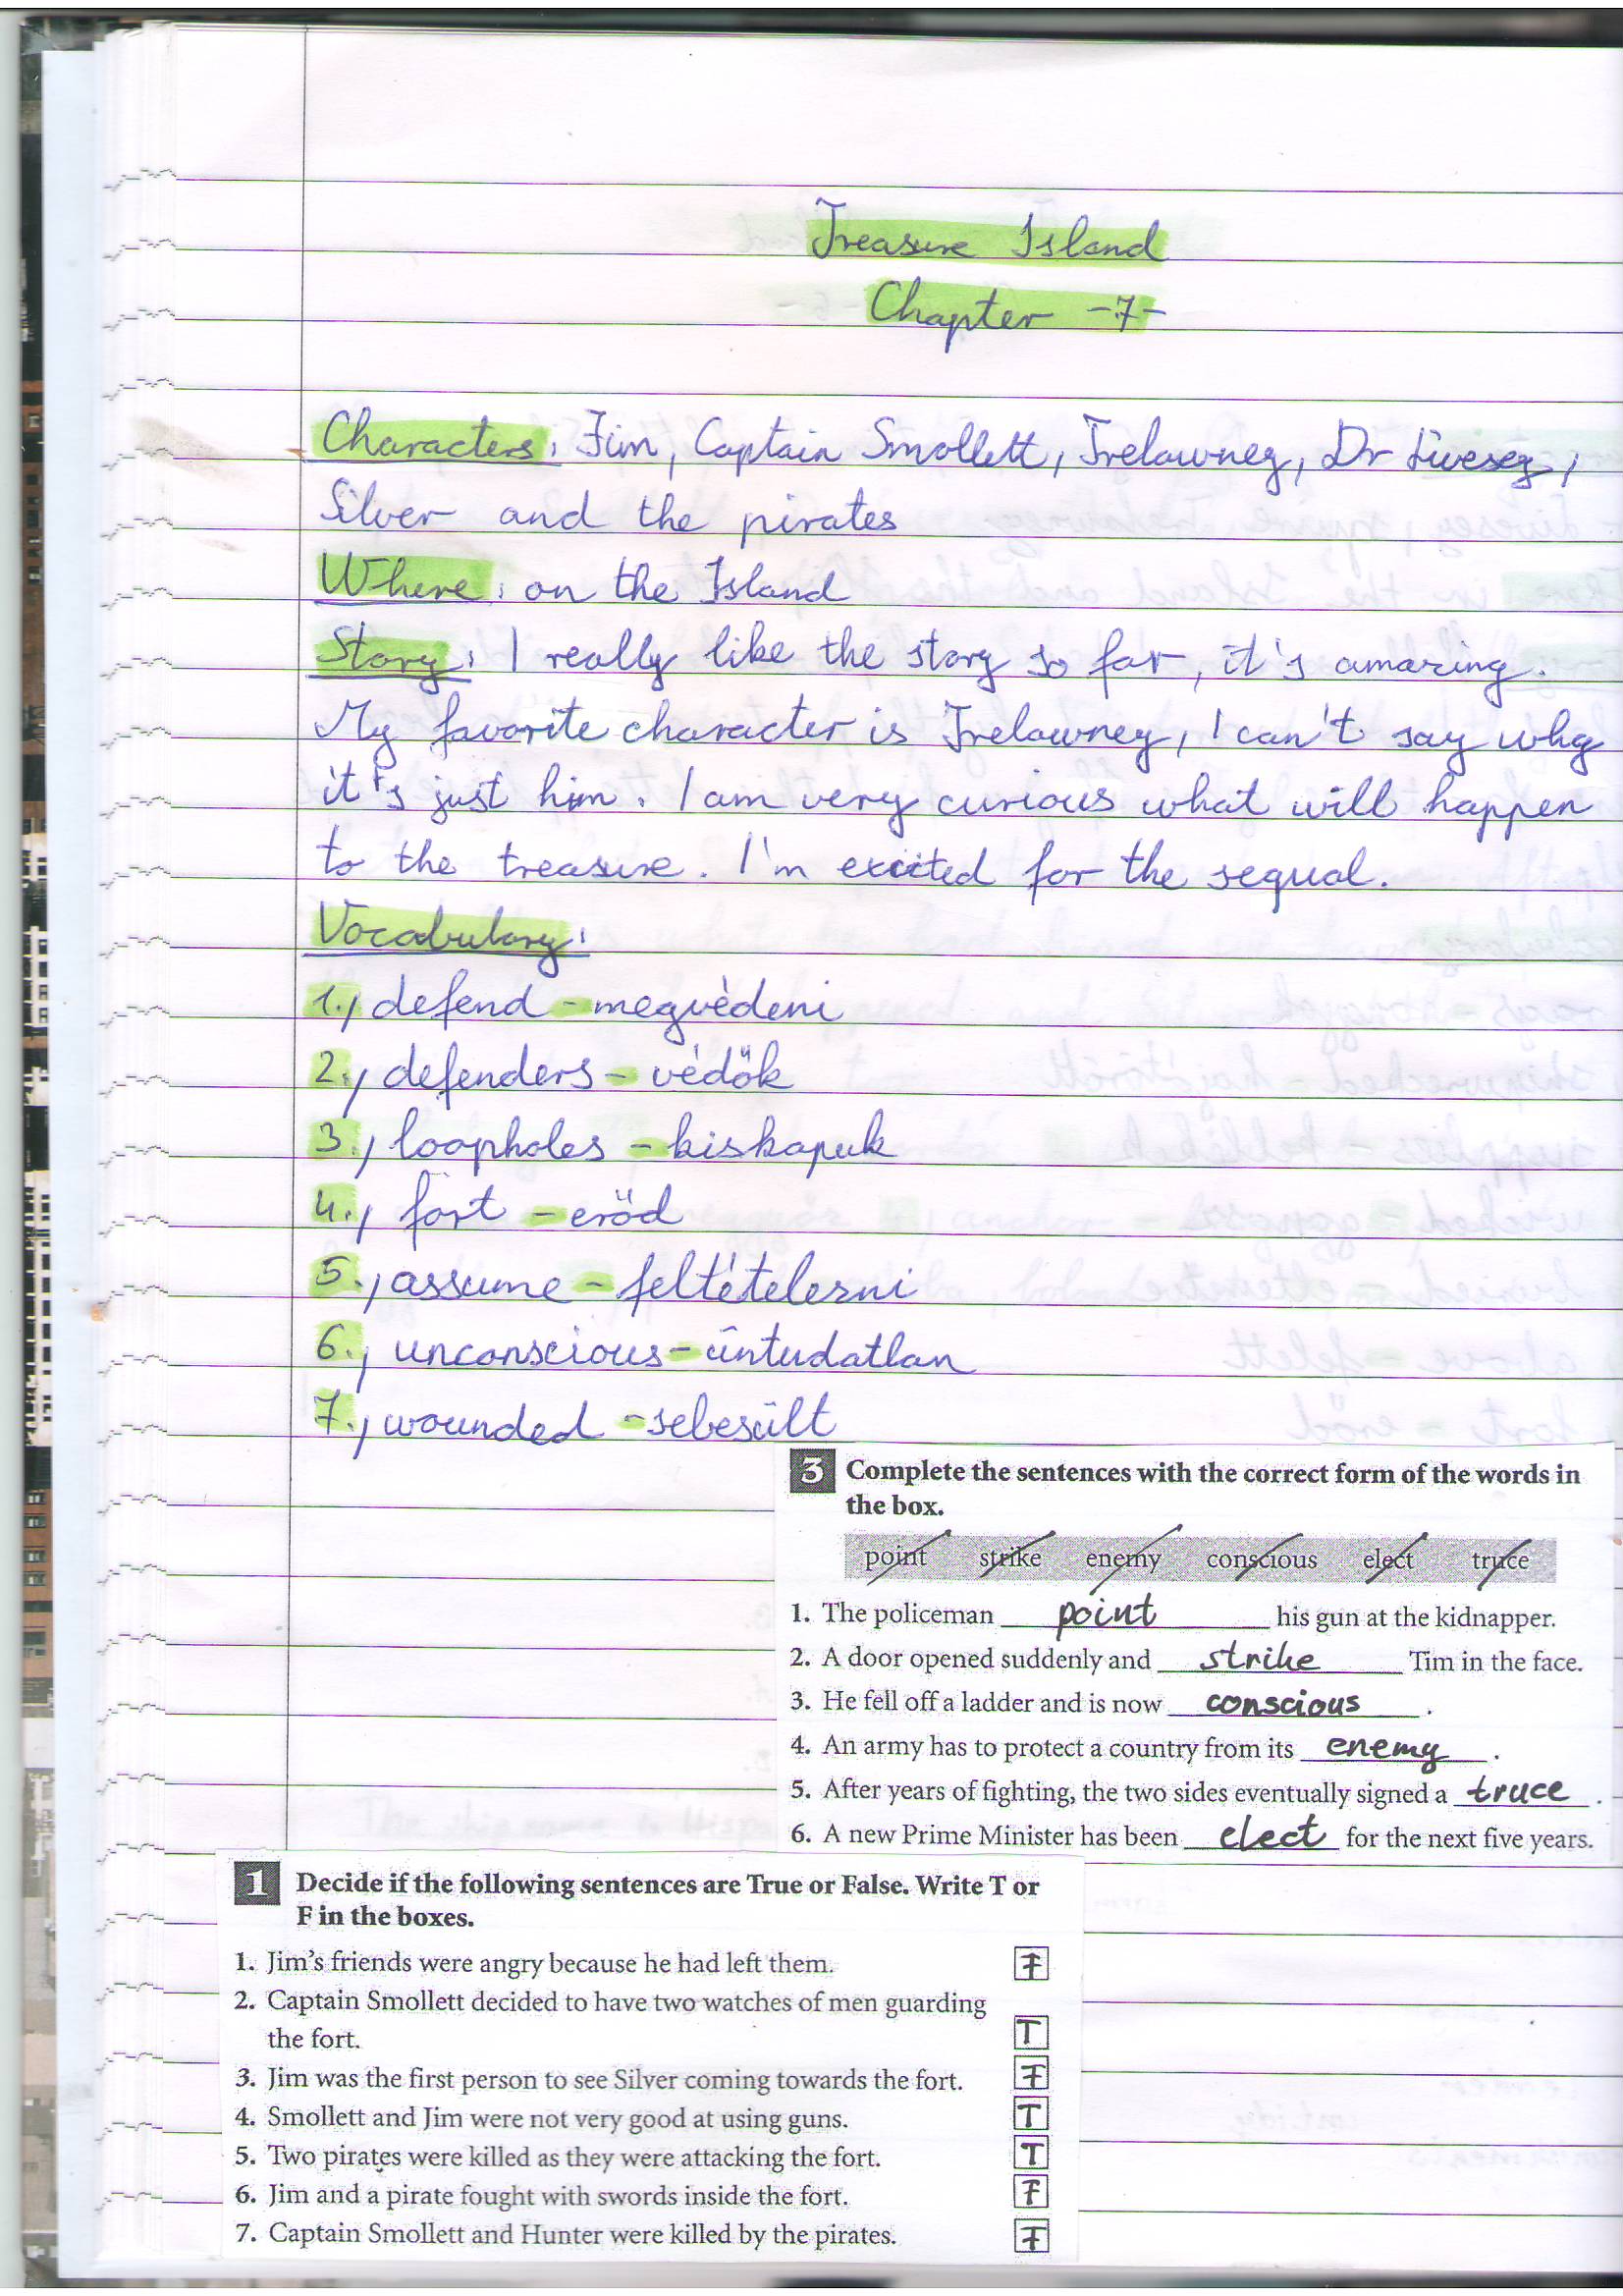 Treasure Island
Chapter -7-
Characters: Jim, Captain Smollett, Trelawney, Dr Livesey,
Silver and the pirates
Where: on the Island
Story: I really like the story so far, it's amazing.
My favorite character is Trelawney, I can't say why
it's just him. I am very curious what will happen
to the treasure. I'm excited for the sequal.
Vocabulary:
1., defend - megvédeni
2., defenders - védök
3., loopholes - kiskapuk
4., fort - eröd
5., assume - feltételezni
6., unconscious - öntudatlan
7., wounded - sebesült
3 Complete the sentences with the correct form of the words in
the box.
point strike enemy conscious elect truce
1. The policeman point his gun at the kidnapper.
2. A door opened suddenly and strike Tim in the face.
3. He fell off a ladder and is now conscious.
4. An army has to protect a country from its enemy.
5. After years of fighting, the two sides eventually signed a truce.
6. A new Prime Minister has been elect for the next five years.
1 Decide if the following sentences are True or False. Write T or
F in the boxes.
1. Jim's friends were angry because he had left them. F
2. Captain Smollett decided to have two watches of men guarding
the fort. T
3. Jim was the first person to see Silver coming towards the fort. F
4. Smollett and Jim were not very good at using guns. T
5. Two pirates were killed as they were attacking the fort. T
6. Jim and a pirate fought with swords inside the fort. F
7. Captain Smollett and Hunter were killed by the pirates. F